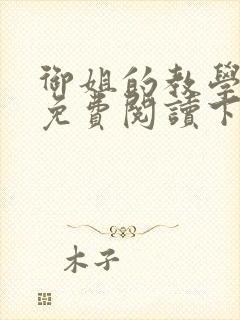 御姐的教學
免費閱讀下
木子